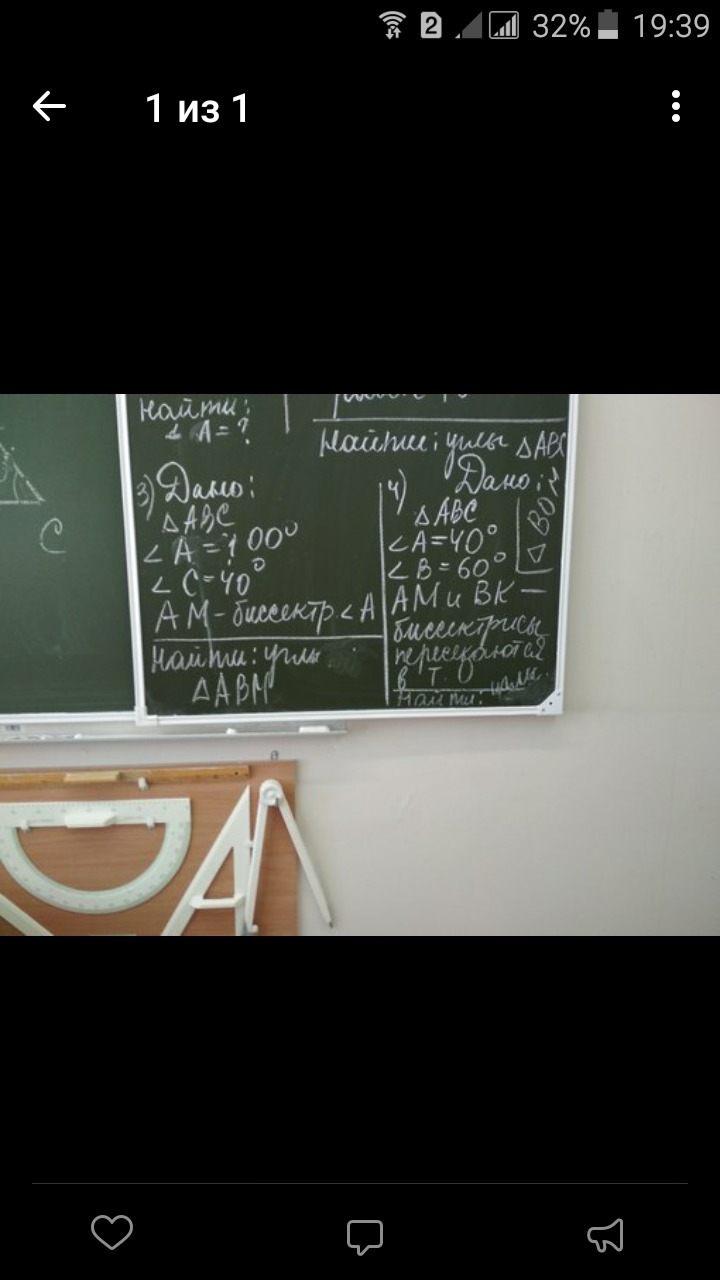 2 32% 19:39
1 из 1
Найти:
∠ A = ?
Найти: углы △ABC
C
3) Дано:
△ABC
∠ A = 100°
∠ C = 40°
AM - биссектр. ∠A
Найти: углы
△ABM
4) Дано:
△ABC
∠A = 40°
∠B = 60°
AM и BK —
биссектрисы
пересекаются
в т.
Найти: углы